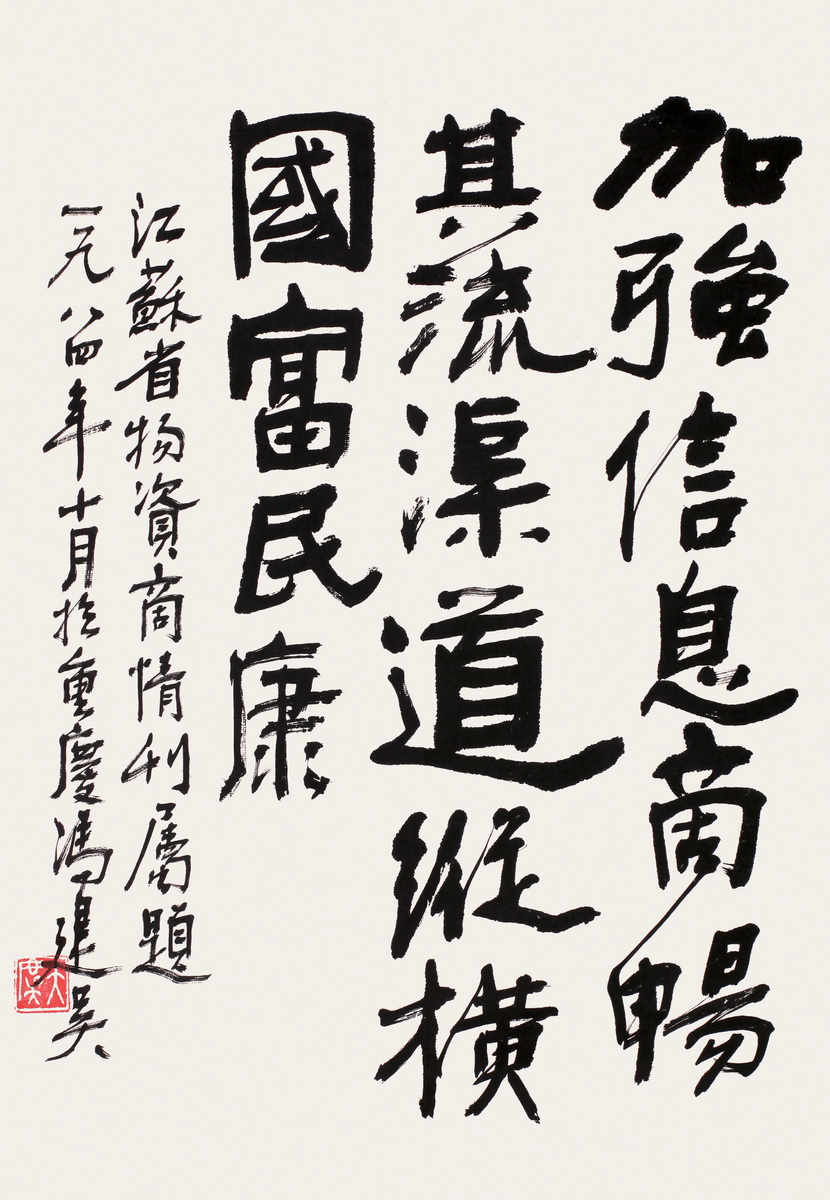 加強信息商暢
其流渠道縱横
國富民康
江蘇省物資商情刊屬題
一九八四年十月於重慶馮建吴